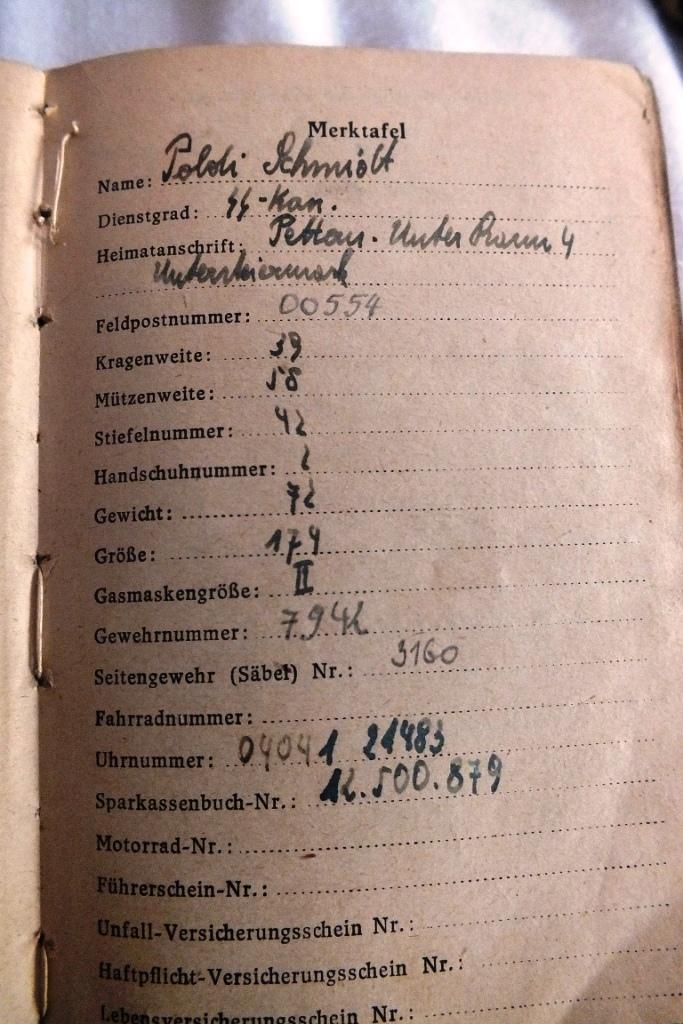 Merktafel
Name: Poldi Schmidt
Dienstgrad: SS-Kan.
Heimatanschrift: Pettau. Unter Rann 4
Untersteiermark
Feldpostnummer: 00554
Kragenweite: 39
Mützenweite: 58
Stiefelnummer: 42
Handschuhnummer: 2
Gewicht: 72
Größe: 174
Gasmaskengröße: II
Gewehrnummer:
Seitengewehr (Säbel) Nr.: 3160
Fahrradnummer:
Uhrnummer: 04041 21483
Sparkassenbuch-Nr.: 12.500.879
Motorrad-Nr.:
Führerschein-Nr.:
Unfall-Versicherungsschein Nr.:
Haftpflicht-Versicherungsschein Nr.:
Lebensversicherungsschein Nr.: